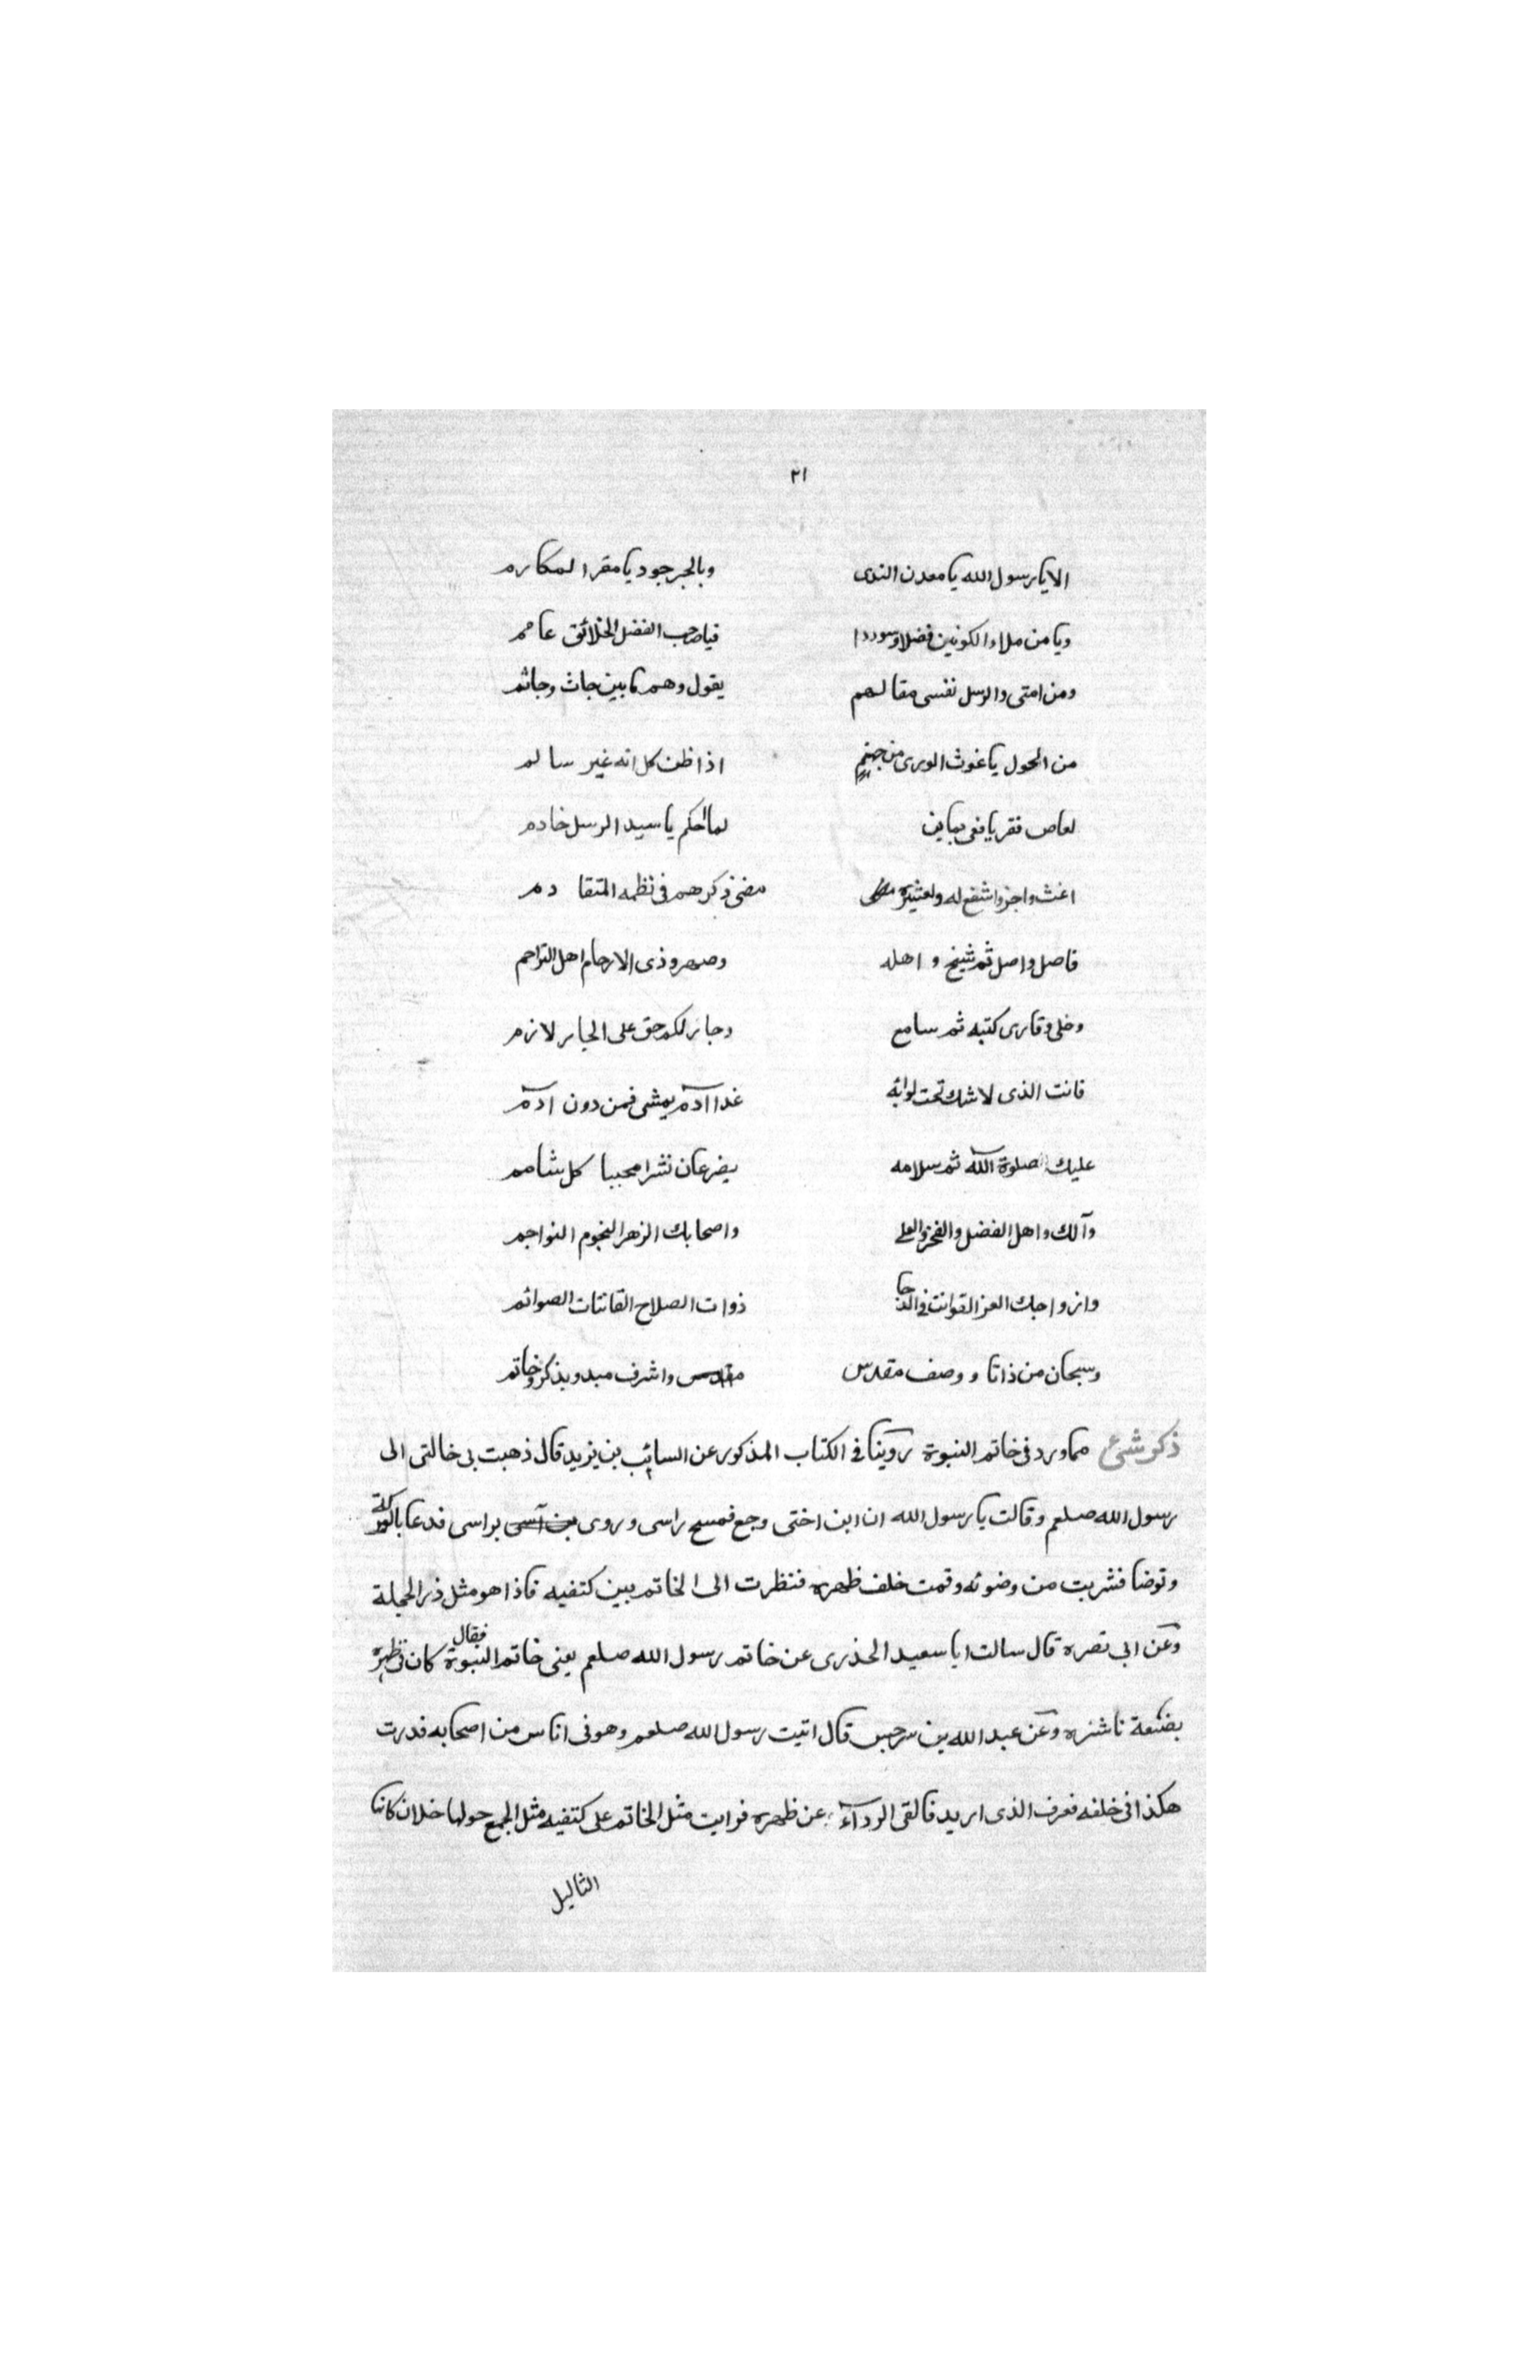 ٢١
الا يا رسول الله يا معدن الندى وبالجر جود يا مقر المكارم
ويا من ملاء الكونين فضلا وسوددا فياصحب الفضل الخلائق عامم
ومن امتى والرسل نفسى مقالهم يقول وهم ما بين جاث وجاثم
من الحول يا غوث الورى من جهنم اذا ظن كل انه غير سالم
لعاص فقر يافعى يماين لمالحكم يا سيد الرسل خادم
اغث واجز واشفع له ولعشيرة مضى ذكرهم فى نظمه المتقادم
فاصل واصل ثم شيخ و اهله وصهر وذى الارحام اهل التراحم
وخلى وقارى كتبه ثم سامع وجار لكم حق على الجار لازم
فانت الذى لاشك تحت لوائه غدا آدم يمشى فمن دون ادم
عليك صلوة الله ثم سلامه يضرعان نشرا محببا كل شامم
وآلك واهل الفضل والفخر والعلى واصحابك الزهر النجوم النواجم
وازواجك العز القوانت فى الدجا ذوات الصلاح القانتات الصوائم
وسبحان من ذاتا و وصف مقدس واشرف مبدو بذكر وخاتم
ذكر شئ مما ورد فى خاتم النبوة روينا فى الكتاب المذكور عن السائب بن يزيد قال ذهبت بى خالتى الى
رسول الله صلعم وقالت يا رسول الله ان ابن اختى وجع فمسح راسى وروى براسى فدعا بالبركة
وتوضا فشربت من وضوئه وقمت خلف ظهره فنظرت الى الخاتم بين كتفيه فاذا هو مثل ذر الحجلة
وعن ابى نصره قال سالت ابا سعيد الخذرى عن خاتم رسول الله صلعم يعنى خاتم النبوة فقال كان فى ظهره
بضعة ناشزه وعن عبد الله بن سرجس قال اتيت رسول الله صلعم وهو فى اناس من اصحابه فدرت
هكذا فى خلفه فعرف الذى اريد فالقى الردآء عن ظهره فرايت مثل الخاتم على كتفيه مثل الجمع حولها خلان كانها
الثاليل